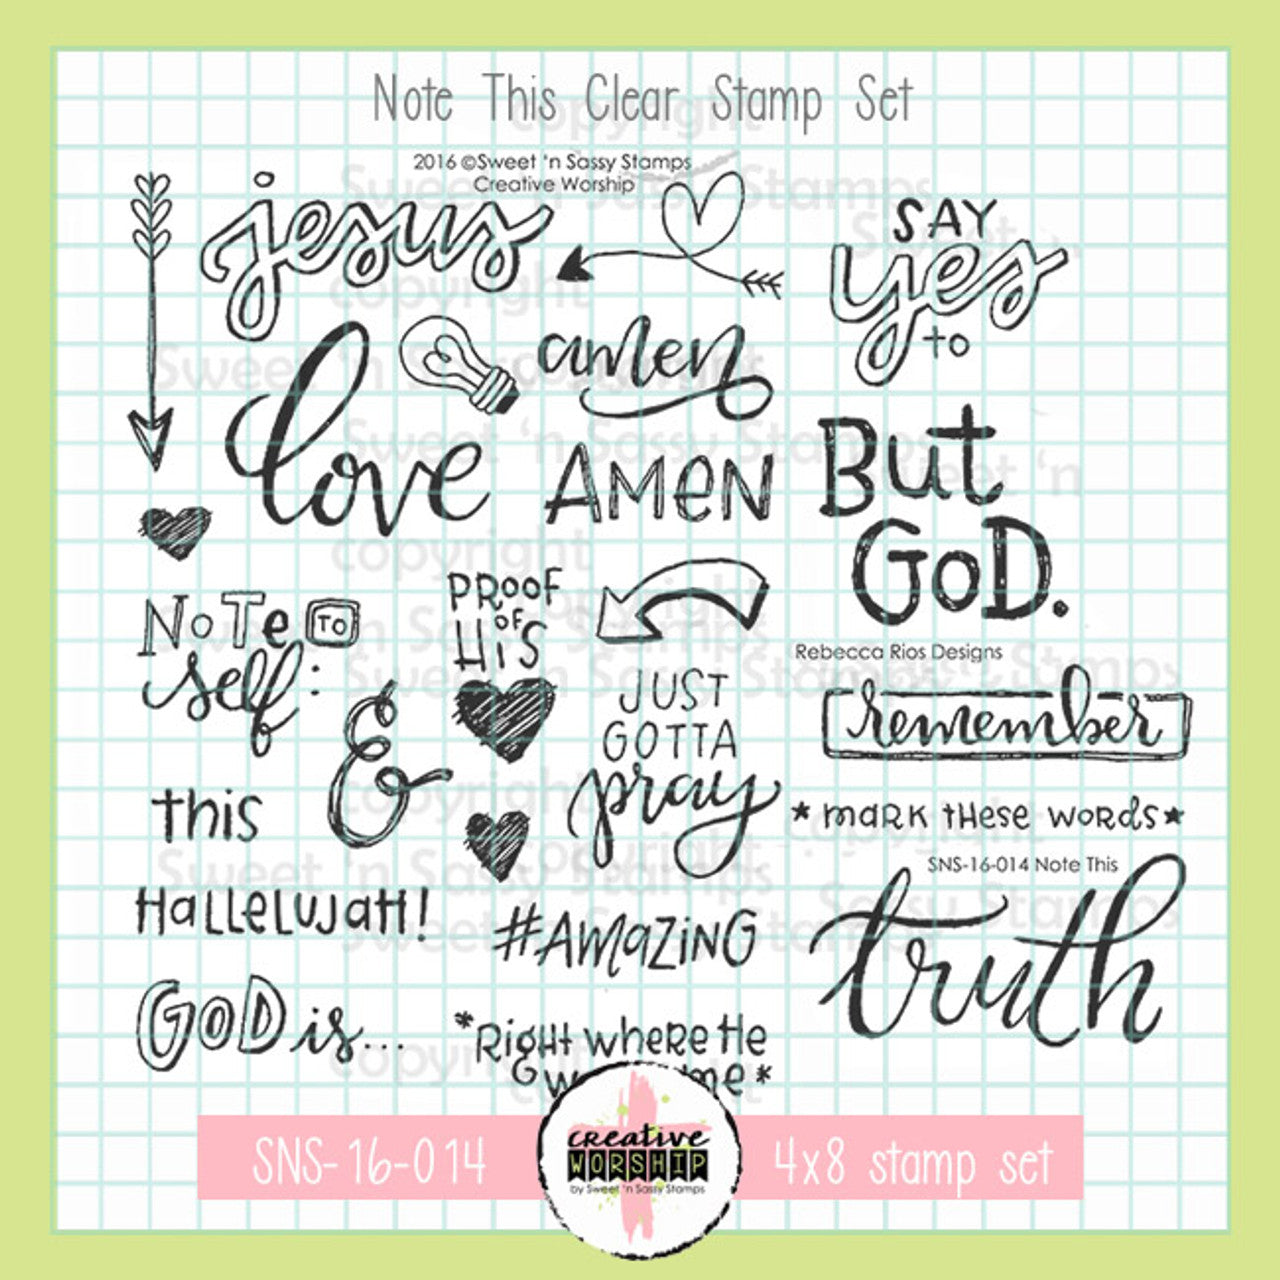 Note This Clear Stamp Set
2016 ©Sweet 'n Sassy Stamps
Creative Worship
jesus
SAY
yes
to
love
amen
AMeN
But
GoD.
Rebecca Rios Designs
NoTe TO
self:
PROOF
OF
HiS
&
JUST
GOTTA
pray
remember
this
*maRK tHese woRds*
SNS-16-014 Note This
truth
HaLLeLuJaH!
#AmaZiNG
GoD is...
*RigHt wHeRe He
me*
SNS-16-014
creative
WORSHIP
by Sweet 'n Sassy Stamps
4x8 stamp set
copyright
Sweet 'n Sassy Stamps
copyright
Sweet 'n Sassy Stamps
copyright
Sweet 'n Sassy Stamps
copyright
Sweet 'n Sassy Stamps
copyright